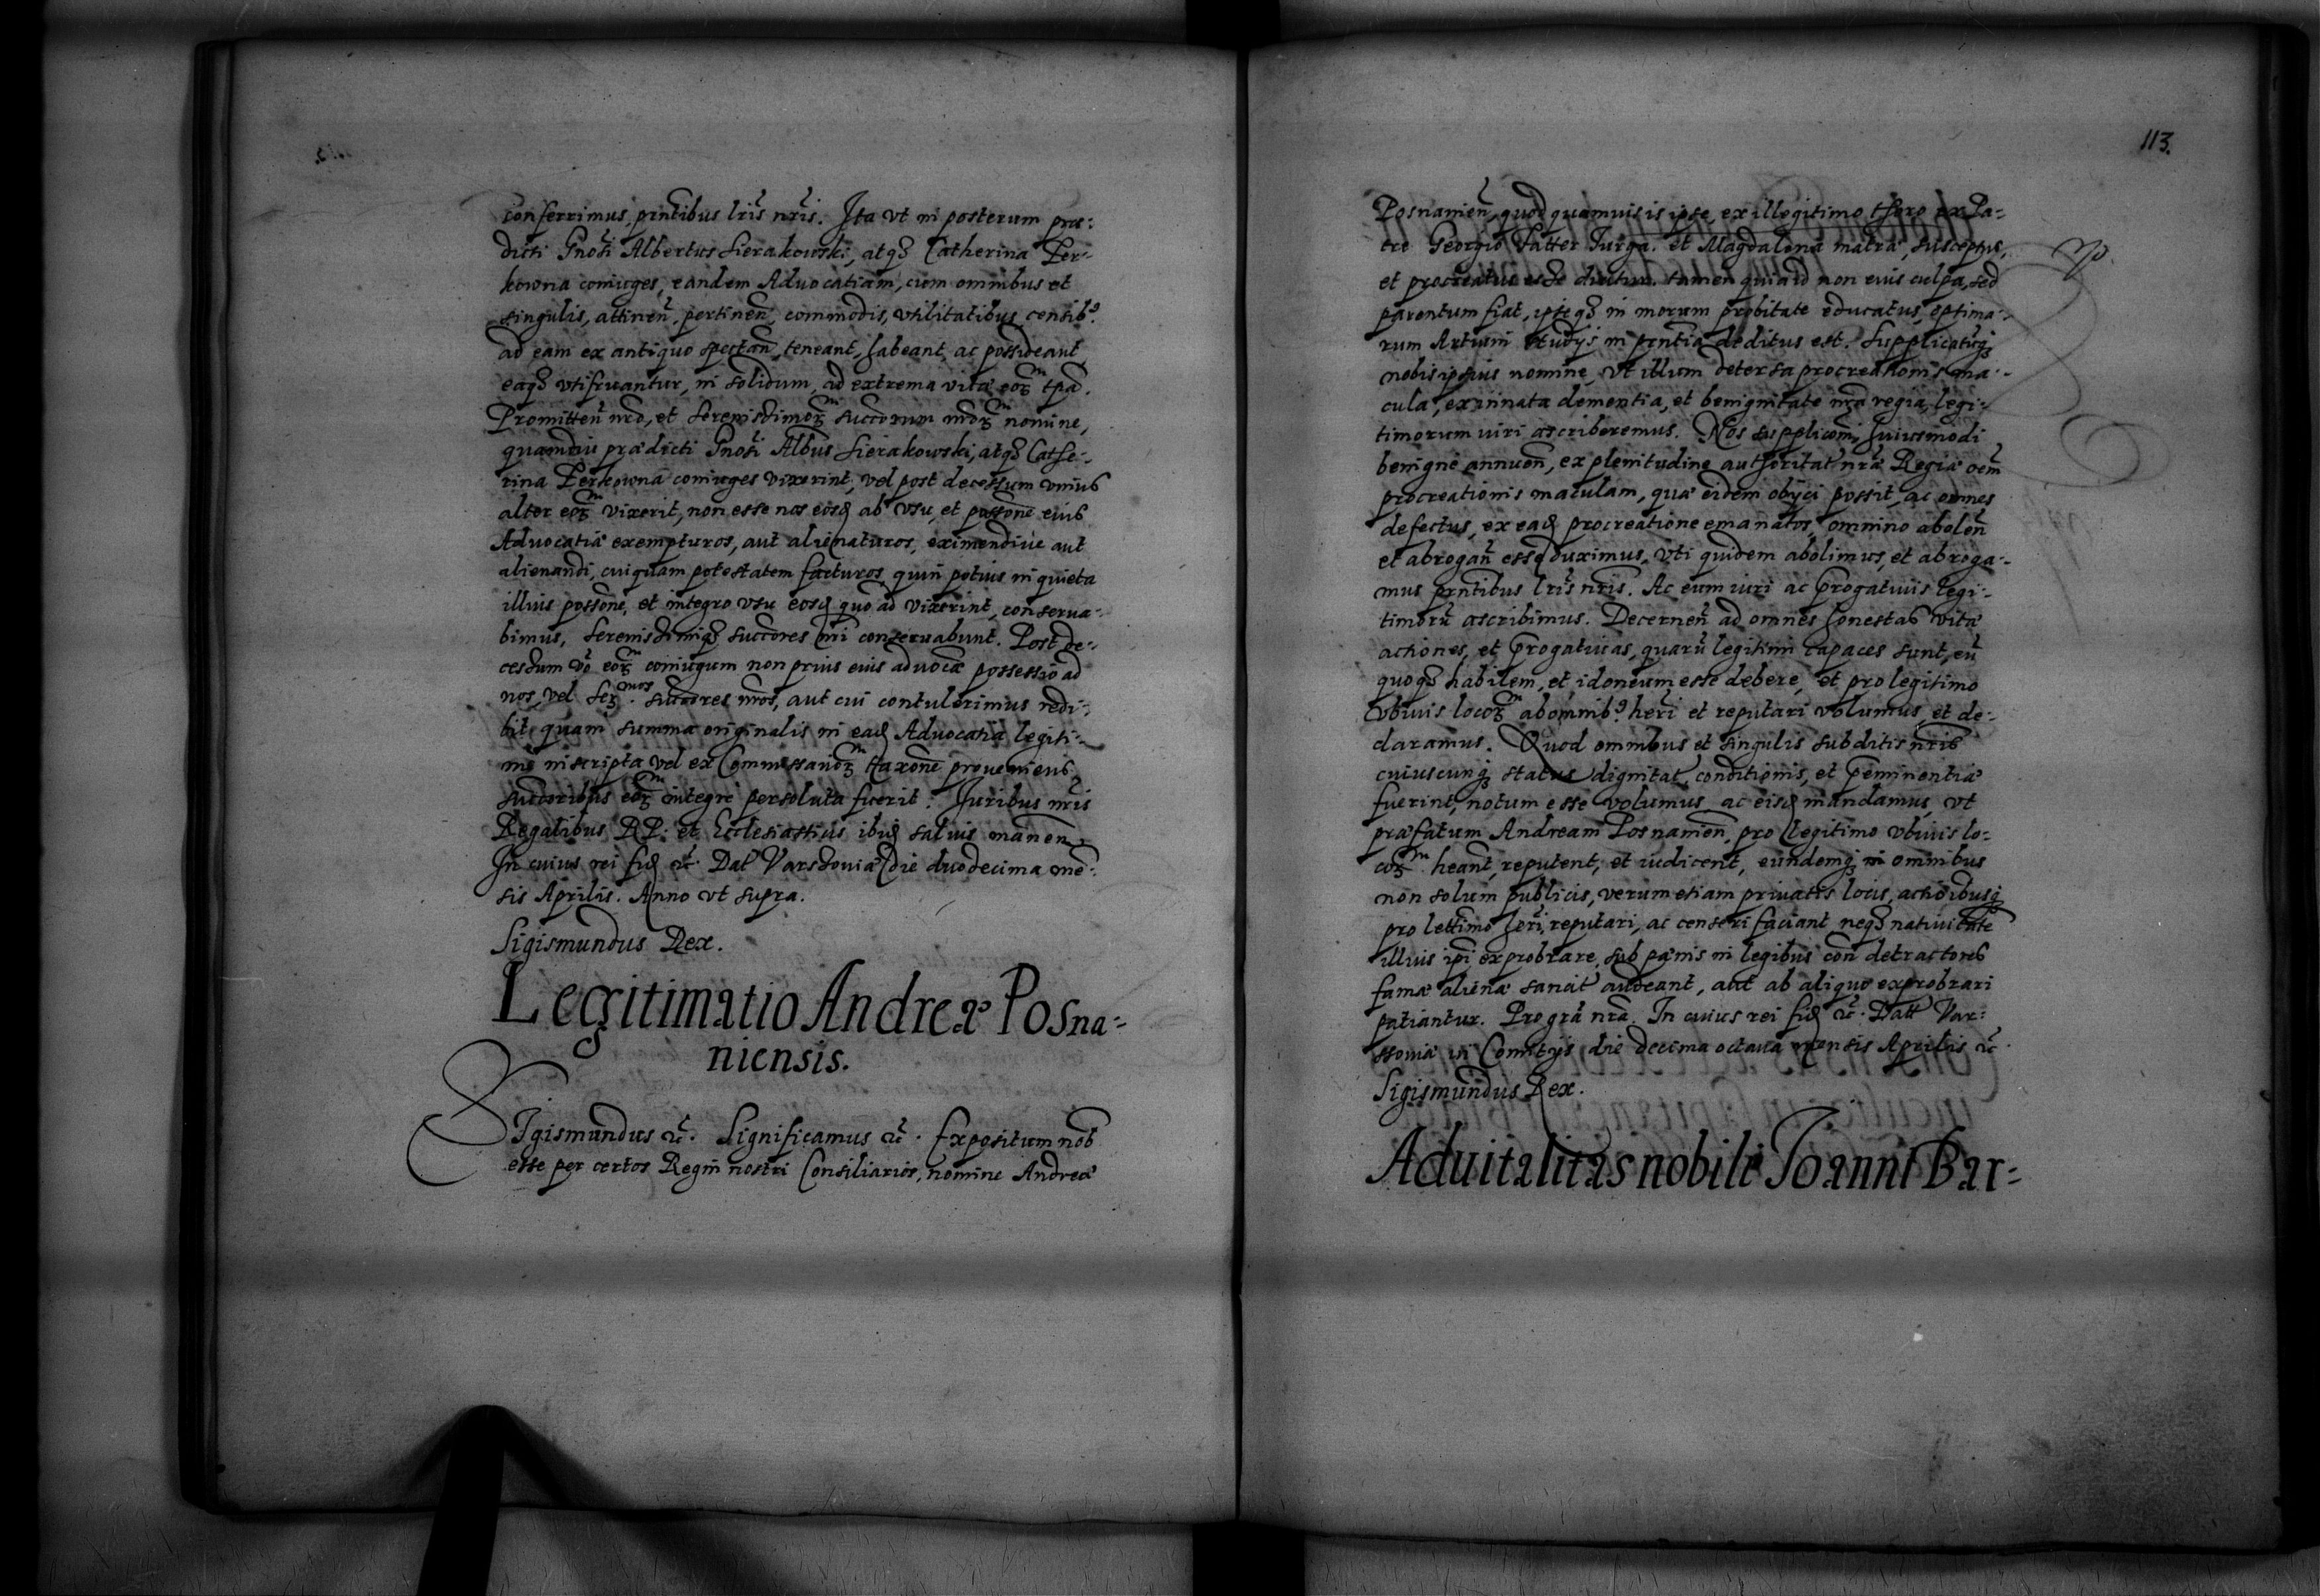 conferrimus, prñtibus lris nris. Ita vt in posterum præ:
dicti Gnosi Albertus Sierakowski, atqȝ Catherina Per-
kowna coniuges, eandem Aduocatiam, cum omnibus et
singulis, attinen̄, pertinen̄, commodis, vtilitatibus, censibꝰ
ad eam ex antiquo spectan̄, teneant, habeant, ac possideant
eaqȝ vtifruantur, in solidum, ad extrema vitæ eorꝫ tp̄a.
Promitten̄ nr̄o, et Serenissimorꝫ succorum nr̄orꝫ nomine,
quamdiu prædicti Gnosi Albus Sierakowski, atqȝ Cathe-
rina Perkowna coniuges vixerint, vel post decessum vnius
alter eorꝫ vixerit, non esse nos eosd ab vsu, et possone eius
Aduocatiæ exempturos, aut alienaturos, eximendiue aut
alienandi, cuiquam potestatem facturos, quin potius in quieta
illius possone, et integro vsu eosd quo ad vixerint, conserua-
bimus, Serenissimiqȝ succores nri conseruabunt. Post de-
cessum vo eorꝫ coniugum non prius eius aduocæ possessio ad
nos, vel Serꝫmos succores nros, aut cui contulerimus redi-
bit, quam summa originalis in ead Aduocatia legiti-
me inscripta vel ex Commissariorꝫ taxone proueniens
succoribus eorꝫ integre persoluta fuerit. Iuribus nris
Regalibus RP. et Ecclesiasticis ibid saluis manen̄
In cuius rei fid &c. Dat Varssouiæ die duodecima mē-
sis Aprilis. Anno vt supra.
Sigismundus Rex.
Legitimatio Andreæ Posna-
niensis.
Sigismundus &c. Significamus &c. Expositum nob
esse per certos Regni nostri Consiliarios, nomine Andreæ
113.
Posnanien̄, quod quamuis is ipse, ex illegitimo thoro ex Pa-
tre Georgio Vatter Iurga. et Magdalena matre, susceptus,
et procreatus esse dicitur. tamen quia id non eius culpa, sed
parentum fiat, ipseqȝ in morum probitate educatus, optima-
rum Artium studys in pn̄tia deditus est. Supplicatūqȝ
nobis ipsius nomine, vt illum detersa procreationis ma-
cula, ex innata clementia, et benignitate nr̄a regia, legi-
timorum iuri ascriberemus. Nos supplicoñi huiusmodi
benigne annuen̄, ex plenitudine authoritat nr̄æ Regiæ oem̄
procreationis maculam, quæ eidem obyci possit, ac omnes
defectus, ex ead procreatione emanatos, omnino abolen̄
et abrogan̄ esse duximus, vti quidem abolimus, et abroga-
mus prn̄tibus lris nris. Ac eum iuri ac progatiuis legi-
timorū ascribimus. Decernen̄ ad omnes honestas vitæ
actiones, et progatiuas, quarū legitimi capaces sunt, eū
quoqȝ habilem, et idoneum esse debere, et pro legitimo
vbiuis locorꝫ ab omnibꝰ heri et reputari volumus, et de-
claramus. Quod omnibus et singulis subditis nris
cuiuscunqȝ status dignitat, conditionis, et preminentiæ
fuerint, notum esse volumus, ac eisd mandamus, vt
præfatum Andream Posnanien̄, pro legitimo vbiuis lo-
corꝫ heant, reputent, et iudicent, eundemqȝ in omnibus
non solum publicis, verum etiam priuatis locis, actioibusqȝ
pro lettimo heri, reputari, ac censeri faciant neqȝ natiuitate
illius ipi exprobrare, sub pænis in legibus con̄ detractores
famæ alienæ sancit audeant, aut ab aliquo exprobrari
patiantur. Pro gra nra. In cuius rei fid &c. Datt Var-
ssouiæ in Comitys die decima octaua mensis Aprilis &c.
Sigismundus Rex.
Aduitalitas nobili Ioanni Bar-